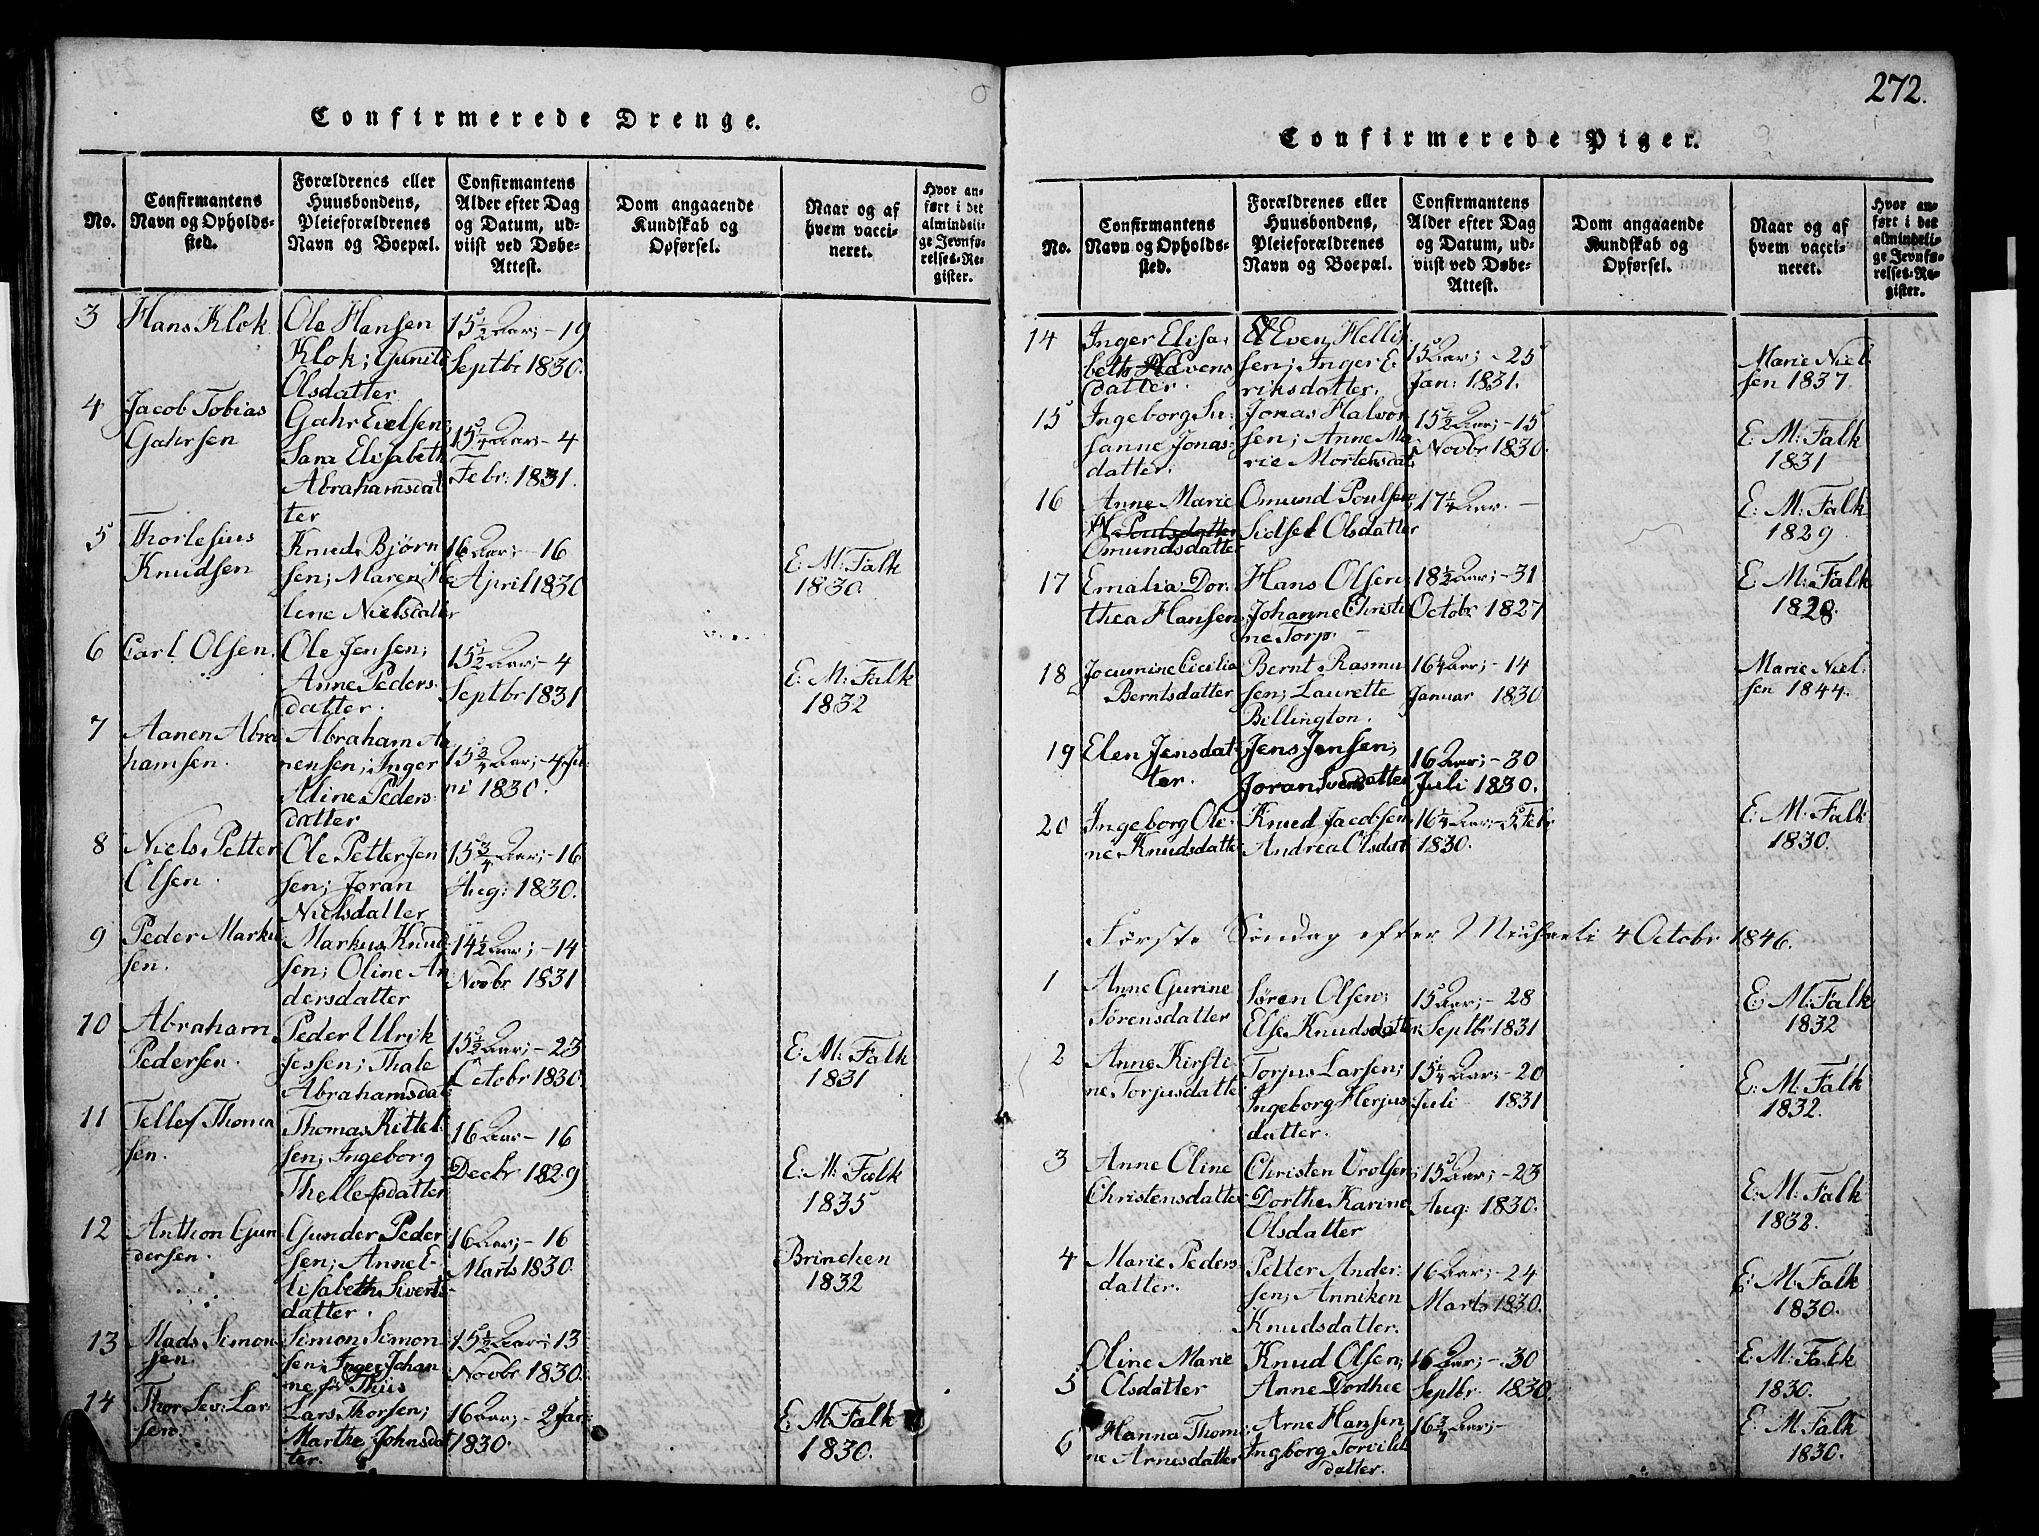 272.
Confirmerede Drenge.
No.
Confirmantens Navn og Opholdssted.
Forældrenes eller Huusbondens, Pleieforældrenes Navn og Boepæl.
Confirmantens Alder efter Dag og Datum, udviist ved Døbe-Attest.
Dom angaaende Kundskab og Opførsel.
Naar og af hvem vaccineret.
Hvor anført i det almindelige Jevnførelses-Register.
3
Hans Klok
Ole Hansen
Klok; Gunild
Olsdatter
15½ Aar; – 19
Septbr 1830.
4
Jacob Tobias
Gahrsen
Gahr Eielsen;
Sara Elisabeth
Abrahamsdat
ter
15¼ Aar; – 4
Febr: 1831.
5
Thorlesius
Knudsen
Knud Bjørn
sen; Maren He
lene Nielsdatter
16 Aar; – 16
April 1830
E: M: Falk
1830.
6
Carl Olsen.
Ole Jensen;
Anne Peders-
datter.
15½ Aar; – 4
Septbr 1831
E: M: Falk
1832
7
Aanen Abra
hamsen.
Abraham Aa
nensen; Inger
Aline Peders-
datter
15¾ Aar; – 4 Ju-
ni 1830.
8
Niels Petter
Olsen.
Ole Petter Jen
sen; Joran
Nielsdatter
15¾ Aar; – 16
Aug: 1830.
9
Peder Marku
sen.
Markus Knud
sen; Oline An
dersdatter
14½ Aar; – 14
Novbr 1831
10
Abraham
Pedersen.
Peder Ulrik
Jessen; Thale
Abrahamsdat
15½ Aar; – 23
Octobr 1830.
E: M: Falk
1831
11
Tellef Thoma
sen.
Thomas Kittel
sen; Ingeborg
Thellefsdatter
16 Aar – 16
Decbr 1829
E: M: Falk
1835
12
Anthon Gun
dersen.
Gunder Peder
sen; Anne E-
lisabeth Siverts
datter.
16 Aar; – 16
Marts 1830.
Brincken
1832
13
Mads Simon
sen.
Simon Simon-
sen; Inger Johan
ne f: Thiis
15½ Aar; 13
Novbr 1830.
14
Thor Sev: Lar
sen.
Lars Thorsen;
Marthe Johnsdat
ter.
16 Aar; – 2 Jan:
1830.
E: M: Falk
1830.
Confirmerede Piger.
No.
Confirmantens Navn og Opholdssted.
Forældrenes eller Huusbondens, Pleieforældrenes Navn og Boepæl.
Confirmantens Alder efter Dag og Datum, udviist ved Døbe-Attest.
Dom angaaende Kundskab og Opførsel.
Naar og af hvem vaccineret.
Hvor anført i det almindelige Jevnførelses-Register.
14
Inger Elisa-
beth Evens
datter.
Even Hellik
sen; Inger E-
riksdatter.
15 Aar; – 25
Jan: 1831.
Marie Niel
sen 1837.
15
Ingeborg Su-
sanne Jonas-
datter.
Jonas Halvor
sen; Anne Ma
rie Mortensdat
15½ Aar; – 15
Novbr 1830.
E: M: Falk
1831
16
Anne Marie
Poulsdatter
Omundsdatter
Omund Poulsen
Sidsel Olsdatter
17¼ Aar. –
E: M: Falk
1829
17
Emalia Dor-
thea Hansen
Hans Olsen;
Johanne Christi
ne Torp.
18½ Aar; – 31
Octobr 1827
E: M: Falk
1828.
18
Jocumine Cicilia
Berntsdatter
Bernt Rasmu
sen; Laurette
Billington.
16¼ Aar; – 14
Januar 1830
Marie Niel-
sen 1844.
19
Elen Jensdat-
ter.
Jens Jensen;
Joran Svensdatter
16 Aar; – 30
Juli 1830.
20
Ingeborg Ole-
ne Knudsdatte
Knud Jacobsen
Andrea Olsdat
16¼ Aar; – 5 Febr
1830.
E: M: Falk
1830.
Første Søndag efter Michaeli 4 Octobr 1846.
1
Anne Gurine
Sørensdatter
Søren Olsen;
Else Knudsdatter
15 Aar; – 28
Septbr 1831
E: M: Falk
1832
2
Anne Kirsti
ne Torjusdatte
Torjus Larsen;
Ingeborg Herjus-
datter.
15¼ Aar; – 20
Juli 1831
E: M: Falk
1832.
3
Anne Oline
Christensdatter
Christen Vrolsen;
Dorthe Karine
Olsdatter
15 Aar; – 23
Aug: 1830.
E: M: Falk
1832.
4
Marie Peders
datter.
Petter Ander-
sen; Anniken
Knudsdatter.
16 Aar; – 24
Marts 1830.
E: M: Falk
1830.
5
Oline Marie
Olsdatter
Knud Olsen;
Anne Dorthee
16 Aar; – 30
Septbr 1830.
E: M: Falk
1830.
6
Hanna Thom
ne Arnesdatter
Arne Hansen
Ingborg Torvilds
datter.
16¾ Aar; –
E: M: Falk
1830.